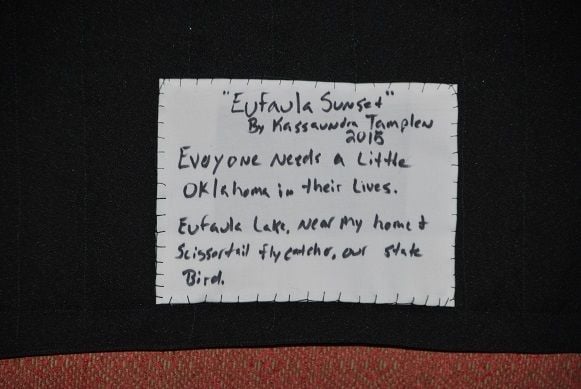 "Eufaula Sunset"
By Kassaundra Tamplen
2015
Eveyone Needs a Little
Oklahoma in their Lives.
Eufaula Lake, Near My home &
Scissortail flycatcher, our state
Bird.